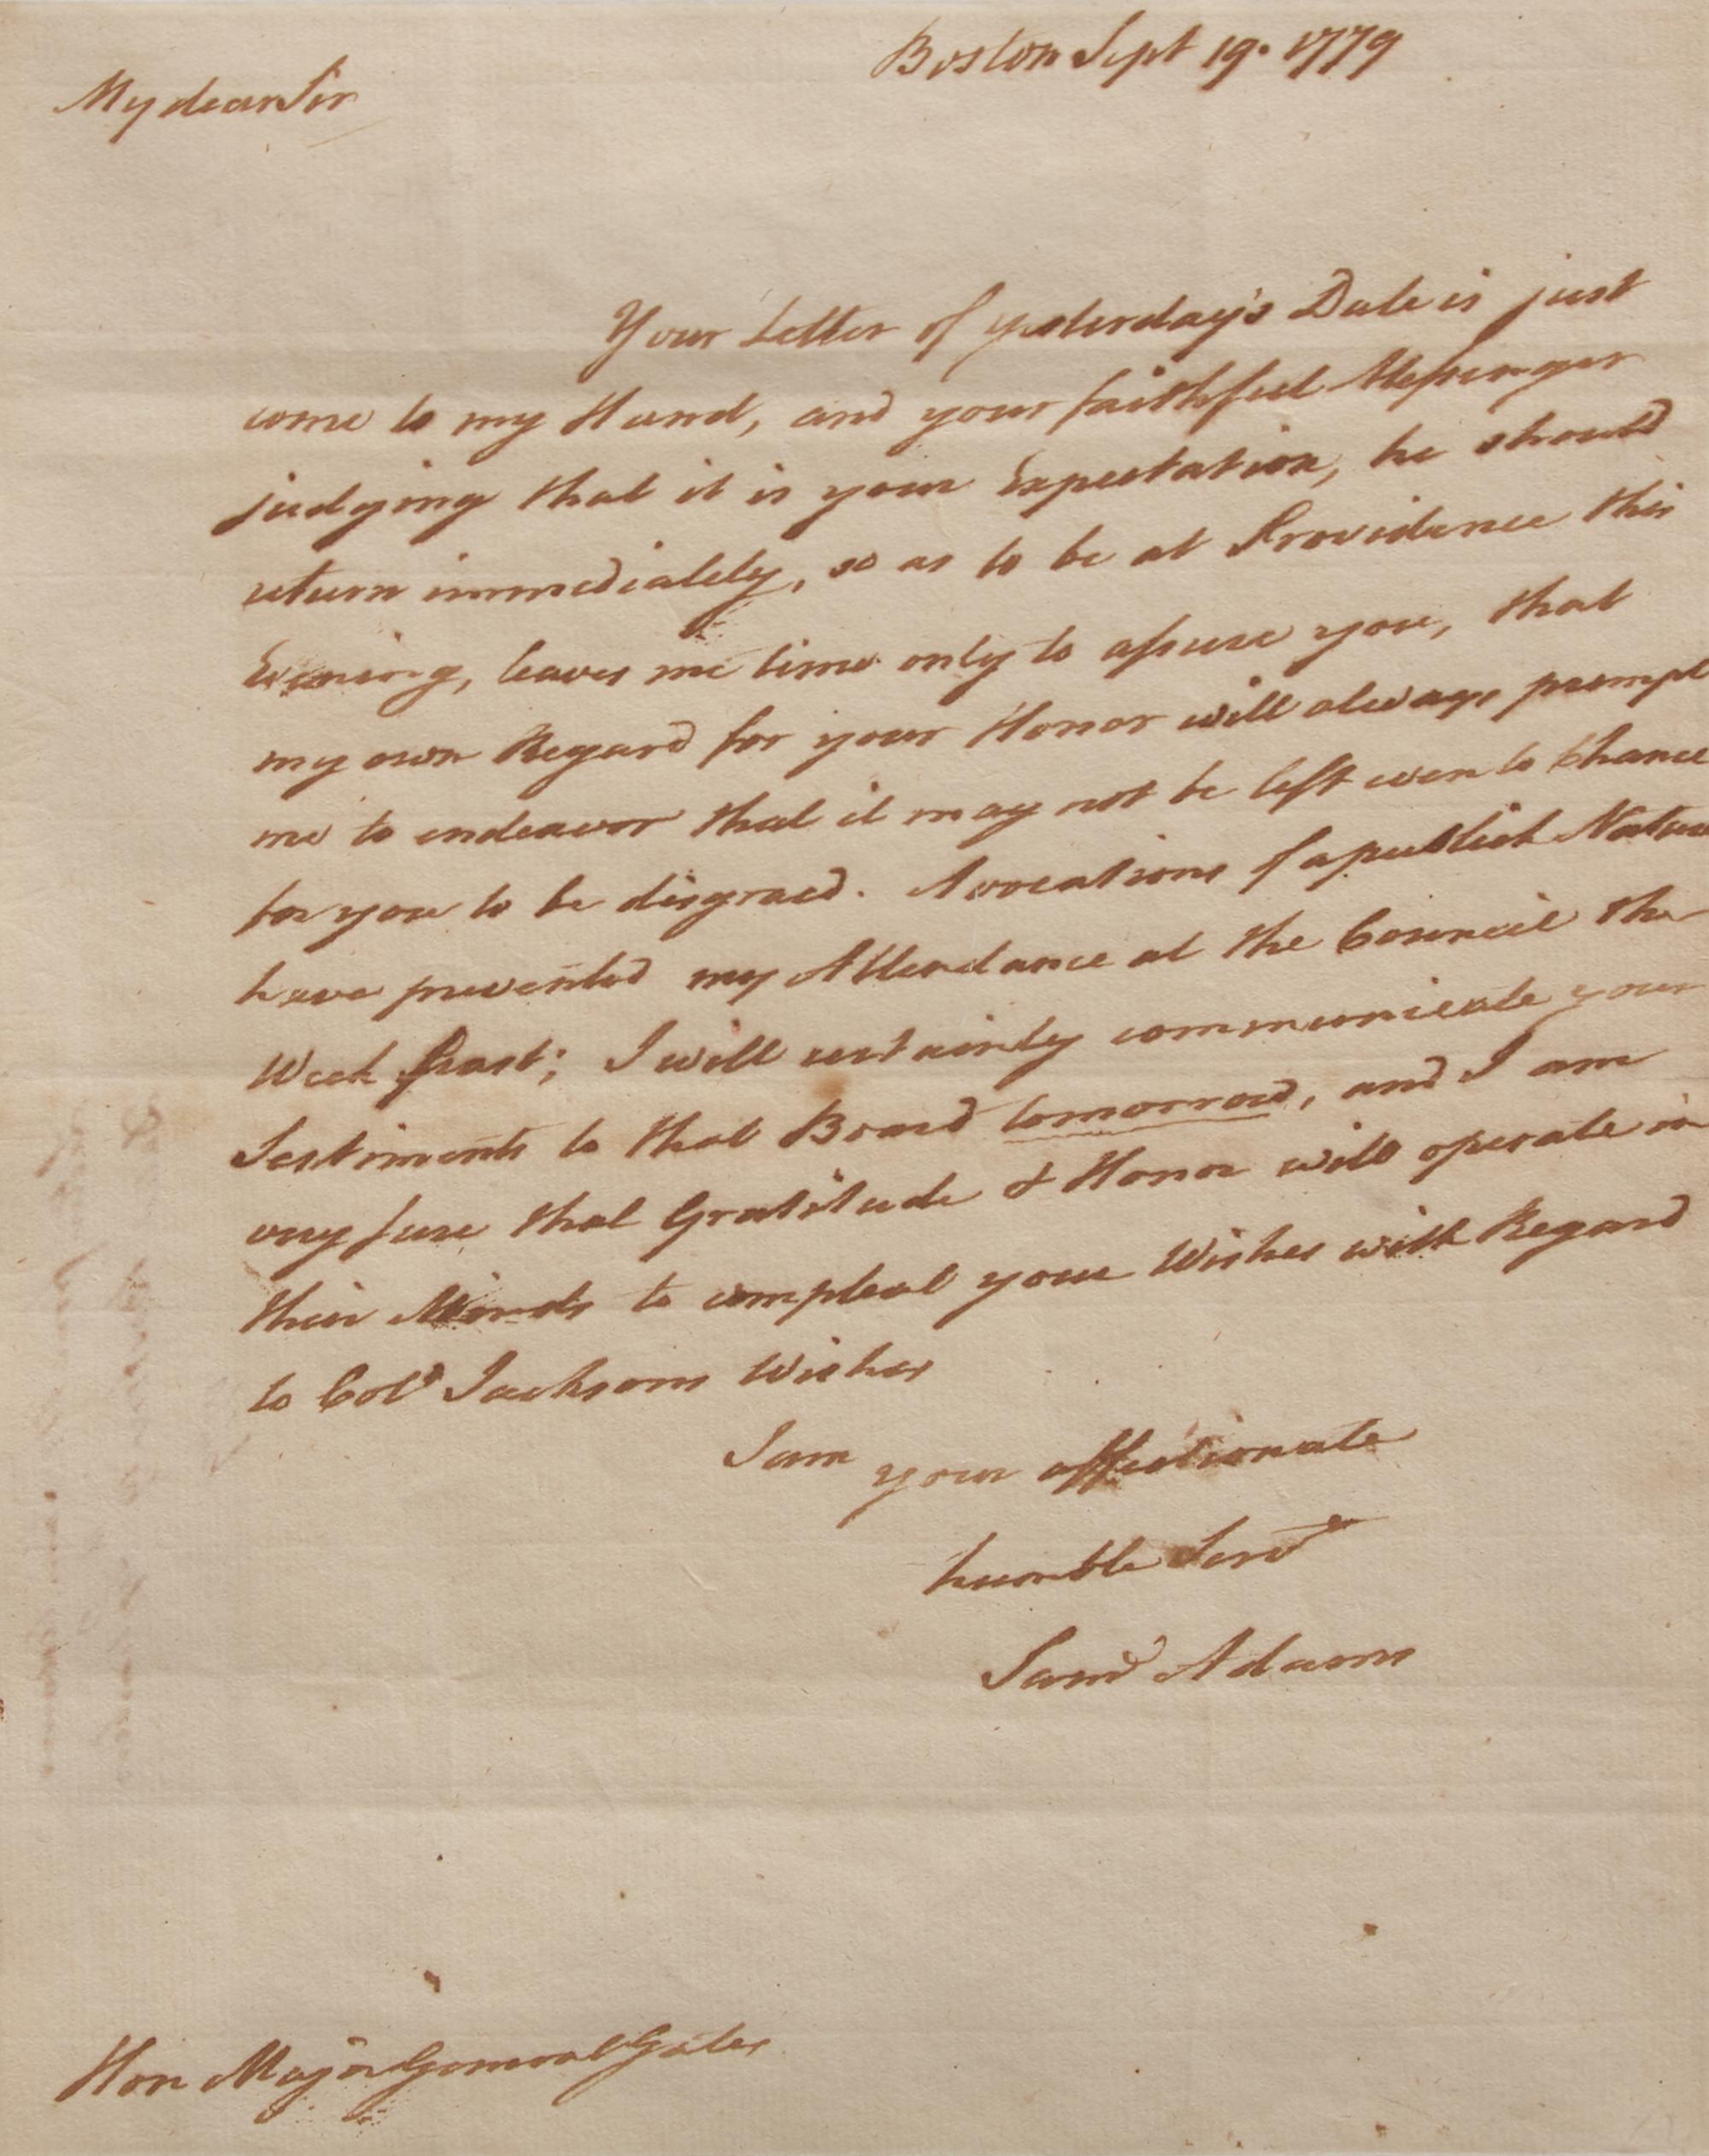 Boston Sept 19. 1779
My dear Sir
Your Letter of yesterday's Date is just
come to my Hand, and your faithful Messenger
judging that it is your Expectation, he should
return immediately, so as to be at Providence this
Evening, leaves me time only to assure you, that
my own Regard for your Honor will always prompt
me to endeavor that it may not be left even to Chance
for you to be disgracd. Avocations of a publick Nature
have prevented my Attendance at the Council the
Week past; I will certainly communicate your
Sentiments to that Board tomorrow, and I am
very sure that Gratitude & Honor will operate in
their Minds to compleat your Wishes with Regard
to Colo Jacksons Wishes
I am your affectionate
humble Servt
Saml Adams
Hon Major General Gates